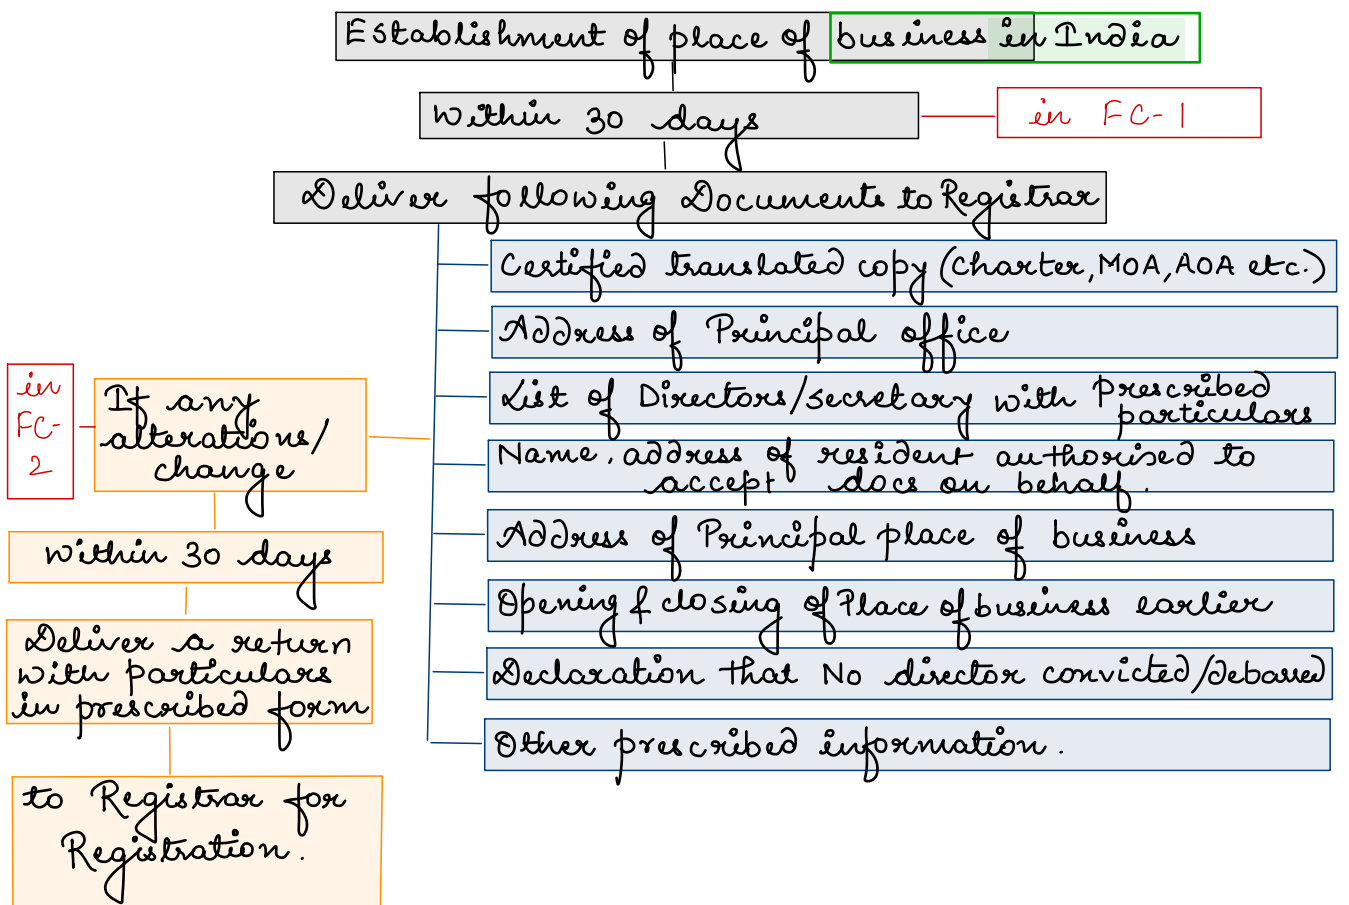 Establishment of place of business in India
Within 30 days
in FC-1
Deliver following Documents to Registrar
Certified translated copy (Charter, MOA, AOA etc.)
Address of Principal office
List of Directors/secretary with prescribed
particulars
Name, address of resident authorised to
accept docs on behalf.
Address of Principal place of business
Opening & closing of Place of business earlier
Declaration that No director convicted/debarred
Other prescribed information.
in
FC-
2
If any
alterations/
change
Within 30 days
Deliver a return
with particulars
in prescribed form
to Registrar for
Registration.